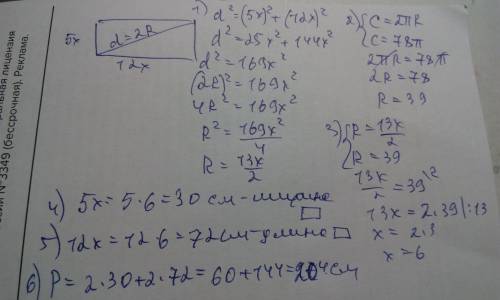 1) d²=(5x)²+(12x)²
d²=25x²+144x²
d²=169x²
(2R)²=169x²
4R²=169x²
R²=169x²/4
R=13x/2
5x
d=2R
12x
2) {C=2πR
C=78π
2πR=78π
2R=78
R=39
3) {R=13x/2
R=39
13x/2=39\2
13x=2.39|:13
x=2.3
x=6
4) 5x=5.6=30 см-ширина
5) 12x=12.6=72см-длина
6) P=2.30+2.72=60+144=204см
альная лицензия
серии № 3349 (бессрочная). Реклама.